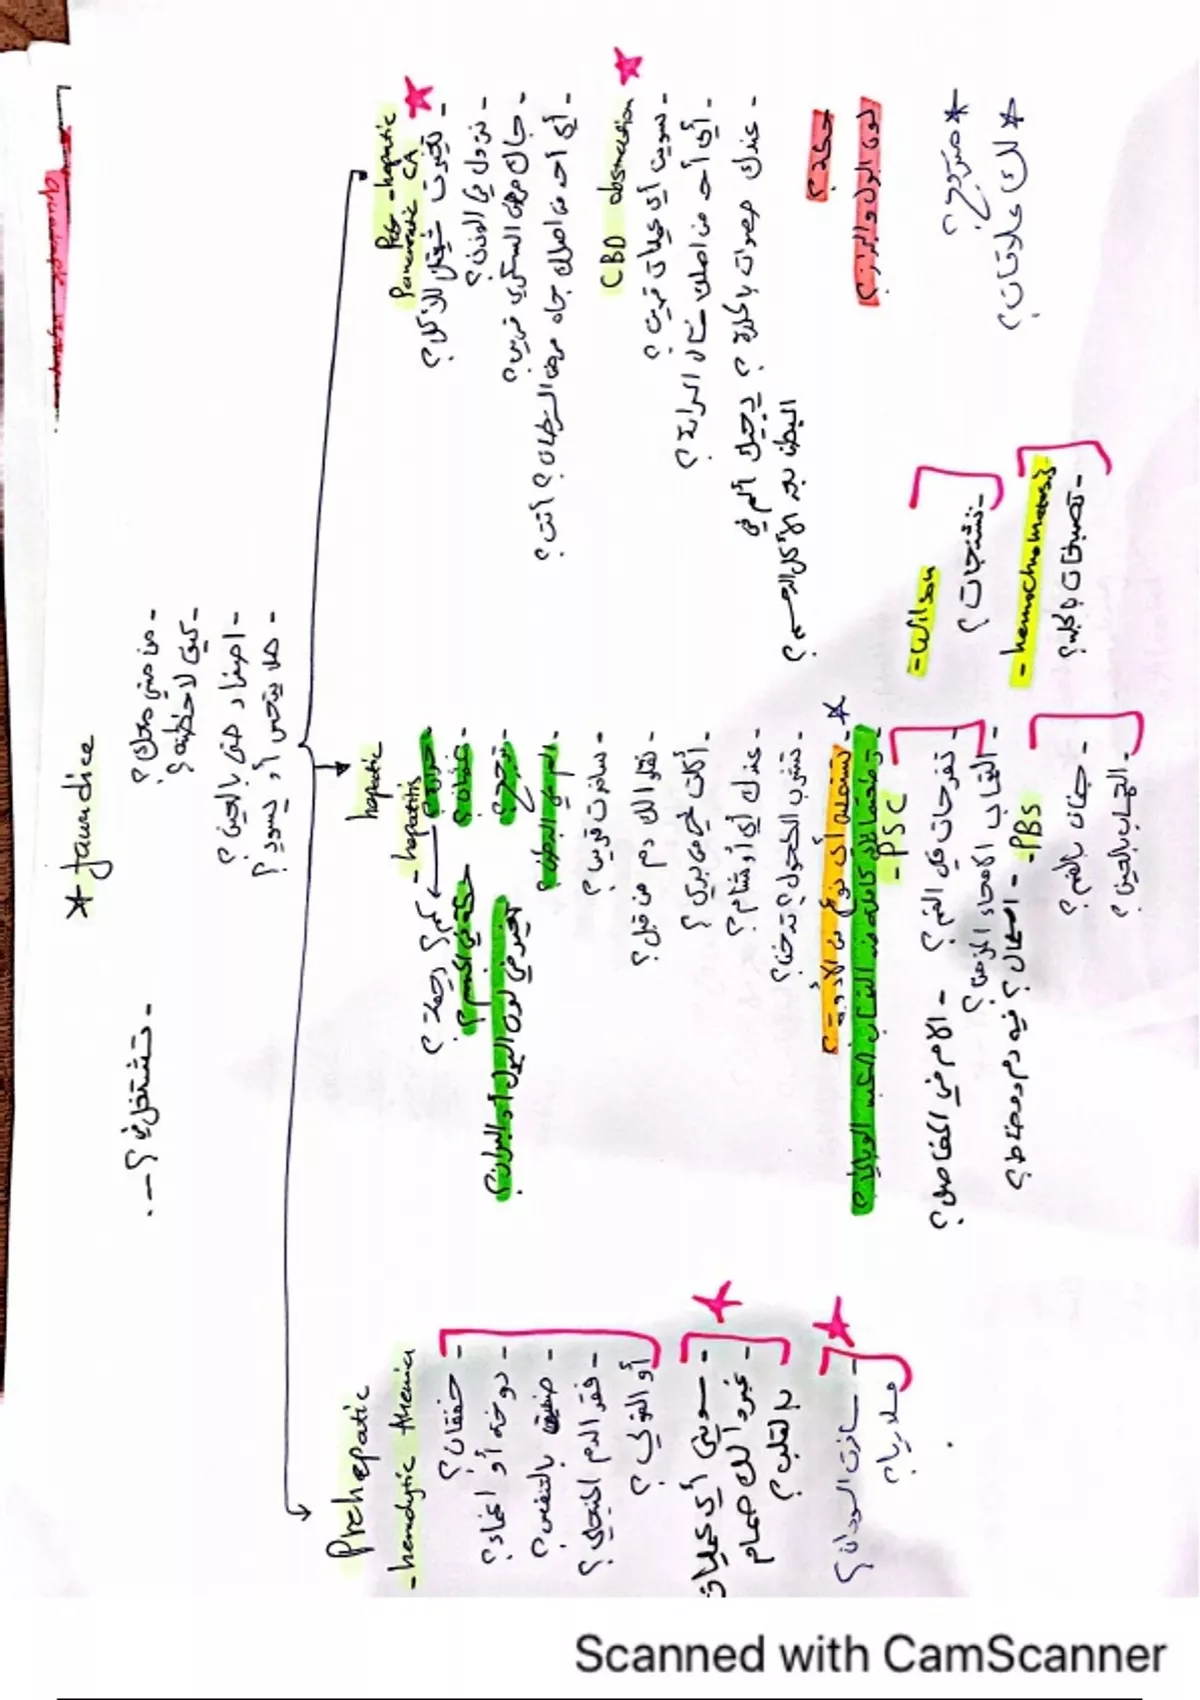 * Jaundice
- تشتغل في؟ -.
- من متى معك؟
- كيف لاحظته؟
- اصفار حتى بالعين؟
- هل يتحسن أو يسوء؟
Prehepatic
- hemolytic Anemia
- خفقان؟
- دوخة أو إغماء؟
- ضيق بالتنفس؟
- فقر الدم المنجلي؟
أو الفولي؟
- سويتي أي عمليات
- غيروا لك صمام
بالقلب؟
- سافرت السودان؟
ملاريا؟
hepatic
- hepatitis
- حرارة؟ كم؟ رجفة؟
- غثيان؟ حكة في الجسم؟
- ترجيع؟ تغير في لون البول أو البراز؟
- ألم في البطن؟
- سافرت قريب؟
- نقلوا لك دم من قبل؟
- أكلت شي من بري؟
- عندك أي أوشام؟
- تشرب الكحول؟ تدخن؟
- تستعمل أي نوع من الأدوية؟ *
- تطعيماتك كاملة ضد التهاب الكبد الوبائي؟
- PSC
- تقرحات في الفم؟ - آلام في المفاصل؟
- التهاب الامعاء المزمن؟
- اسهال؟ فيه دم ومخاط؟
- PBS
- جفاف بالفم؟
- التهاب بالعين؟
- Wilson
- تشنجات؟
- hemochromatosis
- تصبغات بالجلد؟
Post-hepatic
Pancreatic CA
- تغيرت شهيتك للأكل؟
- نزول في الوزن؟
- جاك مرض السكري قريب؟
- أي أحد من اهلك جاه مرض السرطان؟ أنت؟
CBD obstruction
- سويت أي عمليات قريب؟
- أي أحد من اهلك شال المرارة؟
- عندك حصوات بالمرارة؟ يجيك ألم في
البطن بعد الأكل الدسم؟
حكة؟
لون البول والبراز؟
* متزوج؟
* لك علاقات؟
Scanned with CamScanner